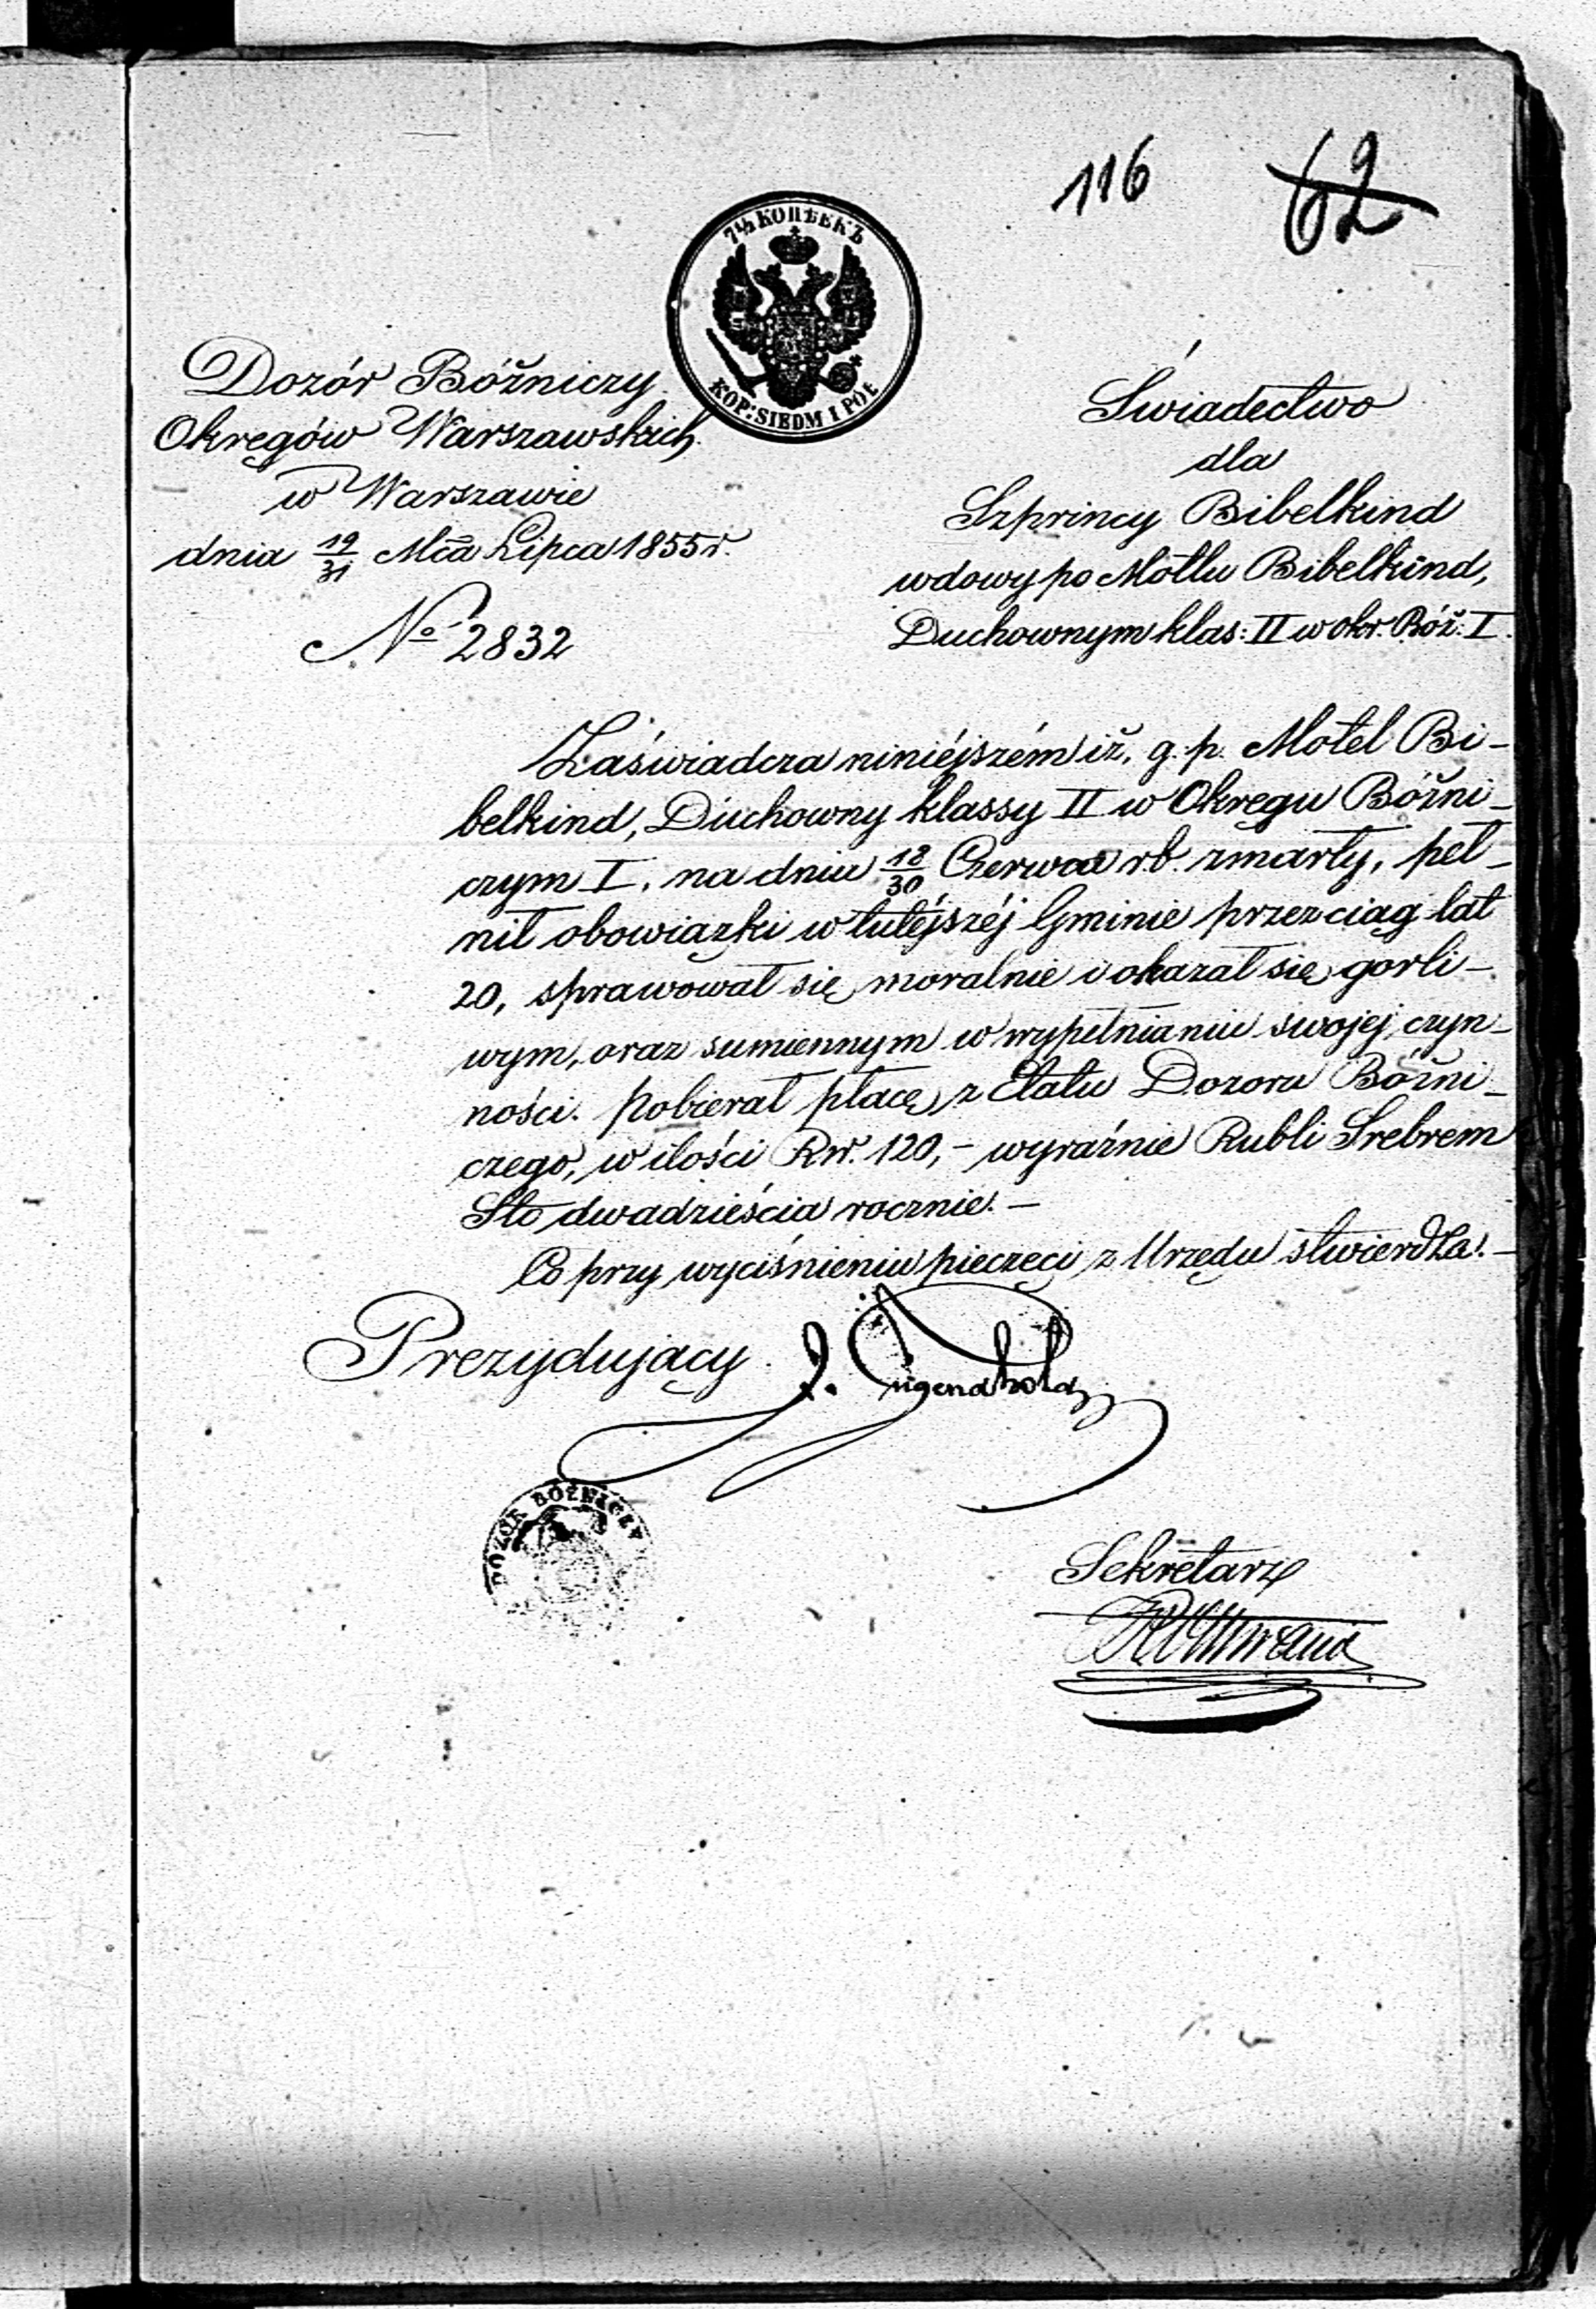 116 62
7½ КОПѢЕКЪ
KOP: SIEDM I PÓŁ
Dozór Bóżniczy
Okręgów Warszawskich
w Warszawie
dnia 19/31 Mca Lipca 1855 r.
No 2832
Świadectwo
dla
Szprincy Bibelkind
wdowy po Motlu Bibelkind,
Duchownym klas: II w okr. Bóż: I.
Zaświadcza niniéjszém iż, g. p. Motel Bi-
belkind, Duchowny klassy II w Okręgu Bóżni-
czym I, na dniu 18/30 Czerwca r.b. zmarły, peł-
nił obowiązki w tutéjszéj Gminie przez ciąg lat
20, sprawował się moralnie i okazał się gorli-
wym, oraz sumiennym w wypełnianiu swojej czyn-
ności. pobierał płacę z Etatu Dozoru Bóżni-
czego, w ilości Rsr. 120, - wyraźnie Rubli Srebrem
Sto dwadzieścia rocznie. -
Co przy wyciśnieniu pieczęci z Urzędu stwierdza. -
Prezydujący J.
DOZÓR BÓŻNICZY
Sekretarz